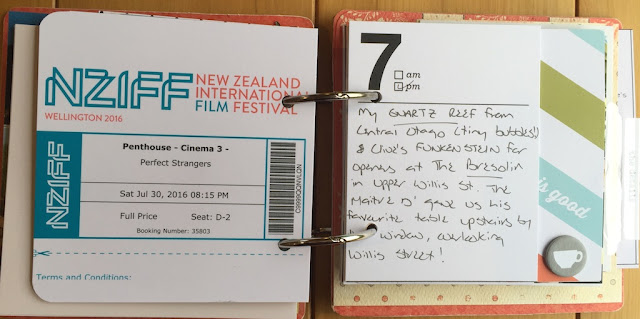 NZIFF
NEW ZEALAND
INTERNATIONAL
FILM FESTIVAL
WELLINGTON 2016
NZIFF
Penthouse - Cinema 3 -
Perfect Strangers
Sat Jul 30, 2016 08:15 PM
Full Price Seat: D-2
Booking Number: 35803
Terms and Conditions:
7
am
pm
My QUARTZ REEF from
Central Otago (tiny bubbles!)
& Clive's FUNKENSTEIN for
openers at The Bresolin
in upper Willis St. The
Maitre D' gave us his
favourite table upstairs by
window, overlooking
Willis Street!
is good